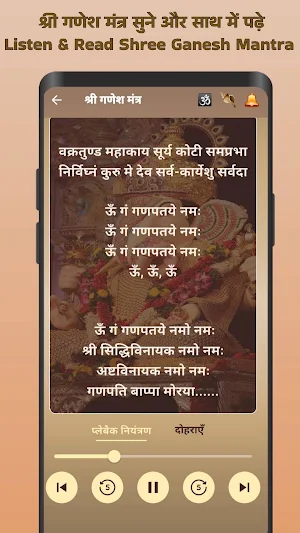 श्री गणेश मंत्र सुने और साथ में पढ़े
Listen & Read Shree Ganesh Mantra
श्री गणेश मंत्र
वक्रतुण्ड महाकाय सूर्य कोटी समप्रभा
निर्विघ्नं कुरु मे देव सर्व-कार्येशु सर्वदा
ऊँ गं गणपतये नमः
ऊँ गं गणपतये नमः
ऊँ गं गणपतये नमः
ऊँ, ऊँ, ऊँ
ऊँ गं गणपतये नमो नमः
श्री सिद्धिविनायक नमो नमः
अष्टविनायक नमो नमः
गणपति बाप्पा मोरया......
प्लेबैक नियंत्रण दोहराएँ
5 5